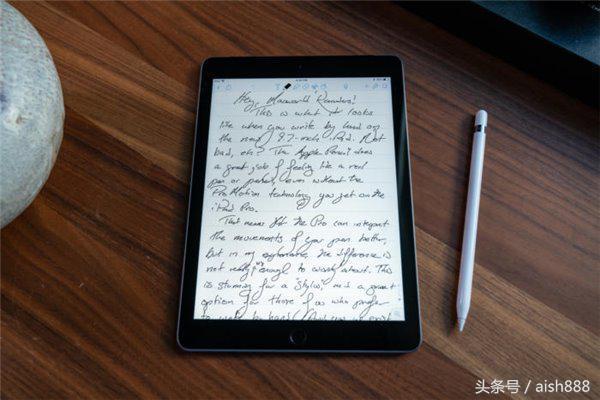 Hey, Macworld Readers!
This is what it looks
like when you write by hand on
the new 9.7-inch iPad. Not
bad, eh? The Apple Pencil does
a great job of feeling like a real
pen or pencil, even without the
ProMotion technology you get on the
iPad Pro.
That means that the Pro can interpret
the movements of your pen better,
but in my experience, the difference is
not really enough to worry about. This
is stunning for a "stylus", and a great
option for those of us who prefer
to write by hand.
头条号 / aish888